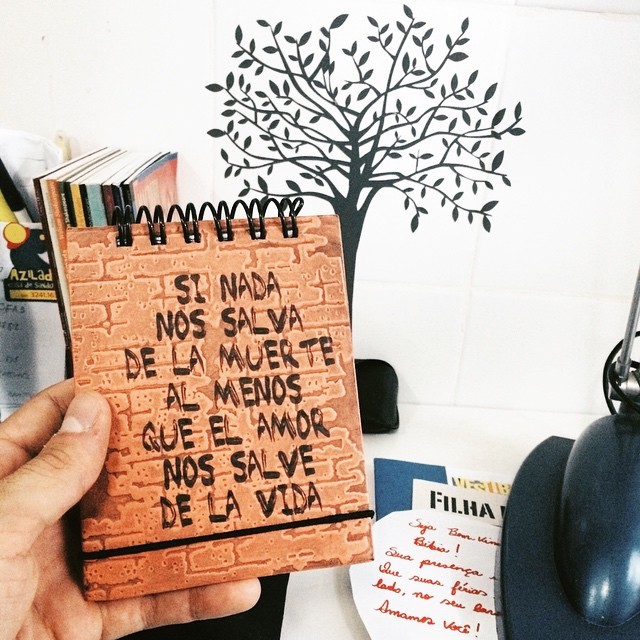 SI NADA
NOS SALVA
DE LA MUERTE
AL MENOS
QUE EL AMOR
NOS SALVE
DE LA VIDA
AZILAD
VESTIB
FILHA
Seja Bem-Vin
Sua presença
Que suas férias
lado, no seu
Amamos Você!